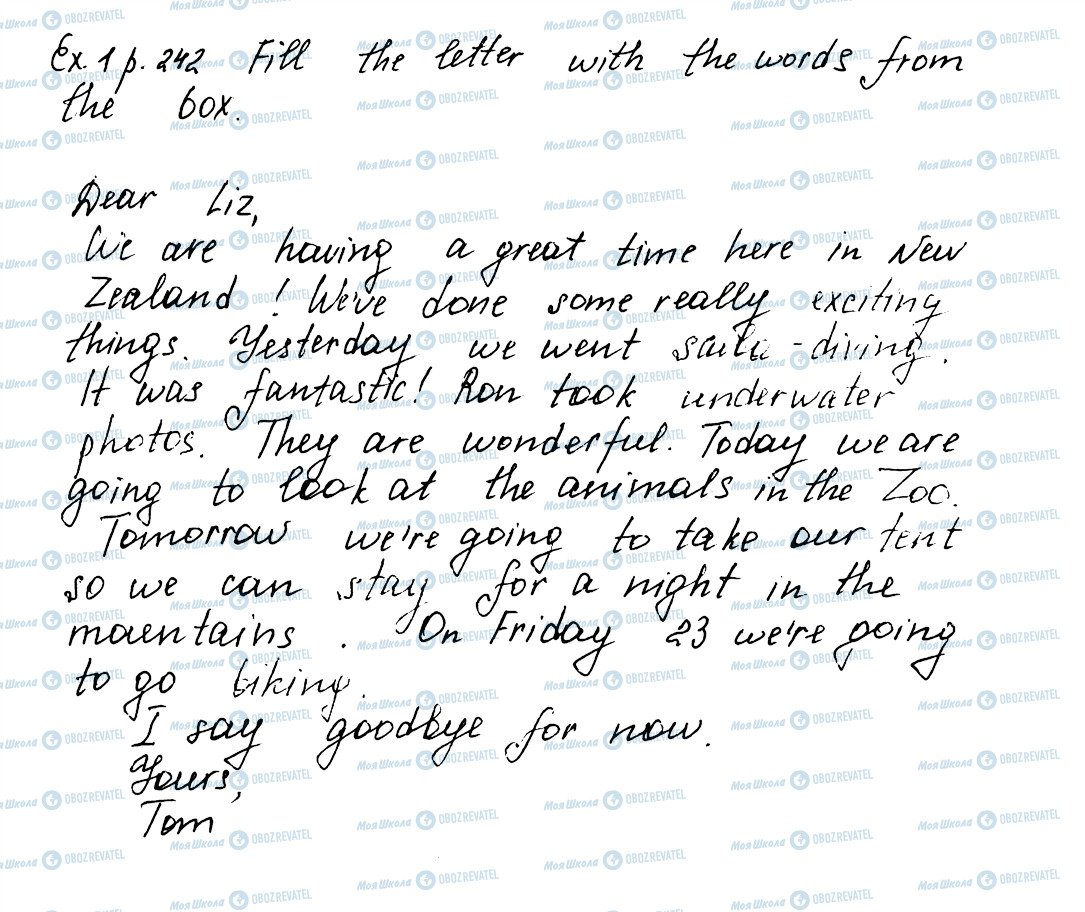 Ex. 1 p. 242 Fill the letter with the words from
the box.
Dear Liz,
We are having a great time here in New
Zealand! We've done some really exciting
things. Yesterday we went -diving.
It was fantastic! Ron took underwater
photos. They are wonderful. Today we are
going to look at the animals in the Zoo.
Tomorrow we're going to take our tent
so we can stay for a night in the
mountains. On Friday 23 we're going
to go biking.
I say goodbye for now.
Yours,
Tom
МояШкола OBOZREVATEL